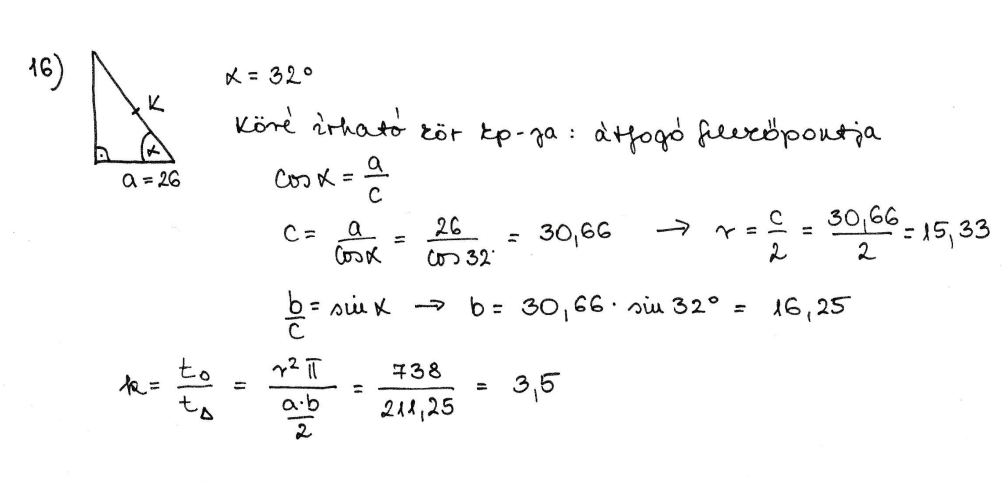 16)
α = 32°
K
α
a = 26
Köré írható kör kp-ja : átfogó felezőpontja
cos α = a/c
c = a/cos α = 26/cos 32° = 30,66 → r = c/2 = 30,66/2 = 15,33
b/c = sin α → b = 30,66 · sin 32° = 16,25
k = t○/t△ = r²π/((a·b)/2) = 738/211,25 = 3,5